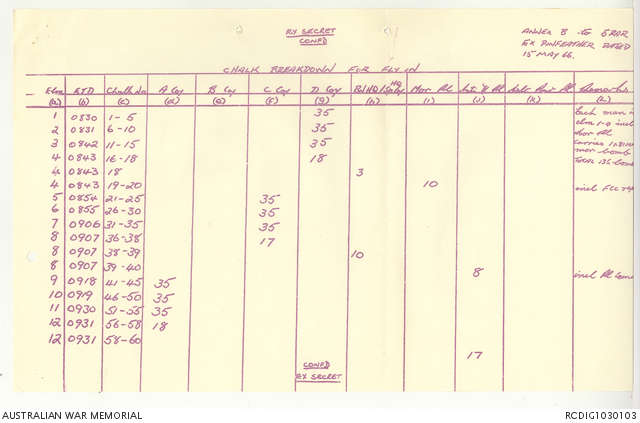 EX SECRET
CONFD
ANNEX B to 5RAR
EX PINFEATHER DATED
15 MAY 66
CHALK BREAKDOWN FOR FLY IN
ETD Chalk No A Coy B Coy C Coy D Coy HQ Mor Pl
(a) (b) (c) (d) (e) (f) (g) (h) (i) (j) (k) (l)
1 0830 1-5 35 Each man in
2 0831 6-10 35
3 0842 11-15 35 carries
4 0843 16-18 18 mor bomb
4 0843 18 3 Total 136 bomb
4 0843 19-20 10 incl FCC
5 0854 21-25 35
6 0855 26-30 35
7 0906 31-35 35
8 0907 36-38 17
8 0907 38-39 10
8 0907 39-40 8 incl Pl
9 0918 41-45 35
10 0919 46-50 35
11 0930 51-55 35
12 0931 56-58 18
12 0931 58-60 17
CONFD
EX SECRET
AUSTRALIAN WAR MEMORIAL RCDIG1030103